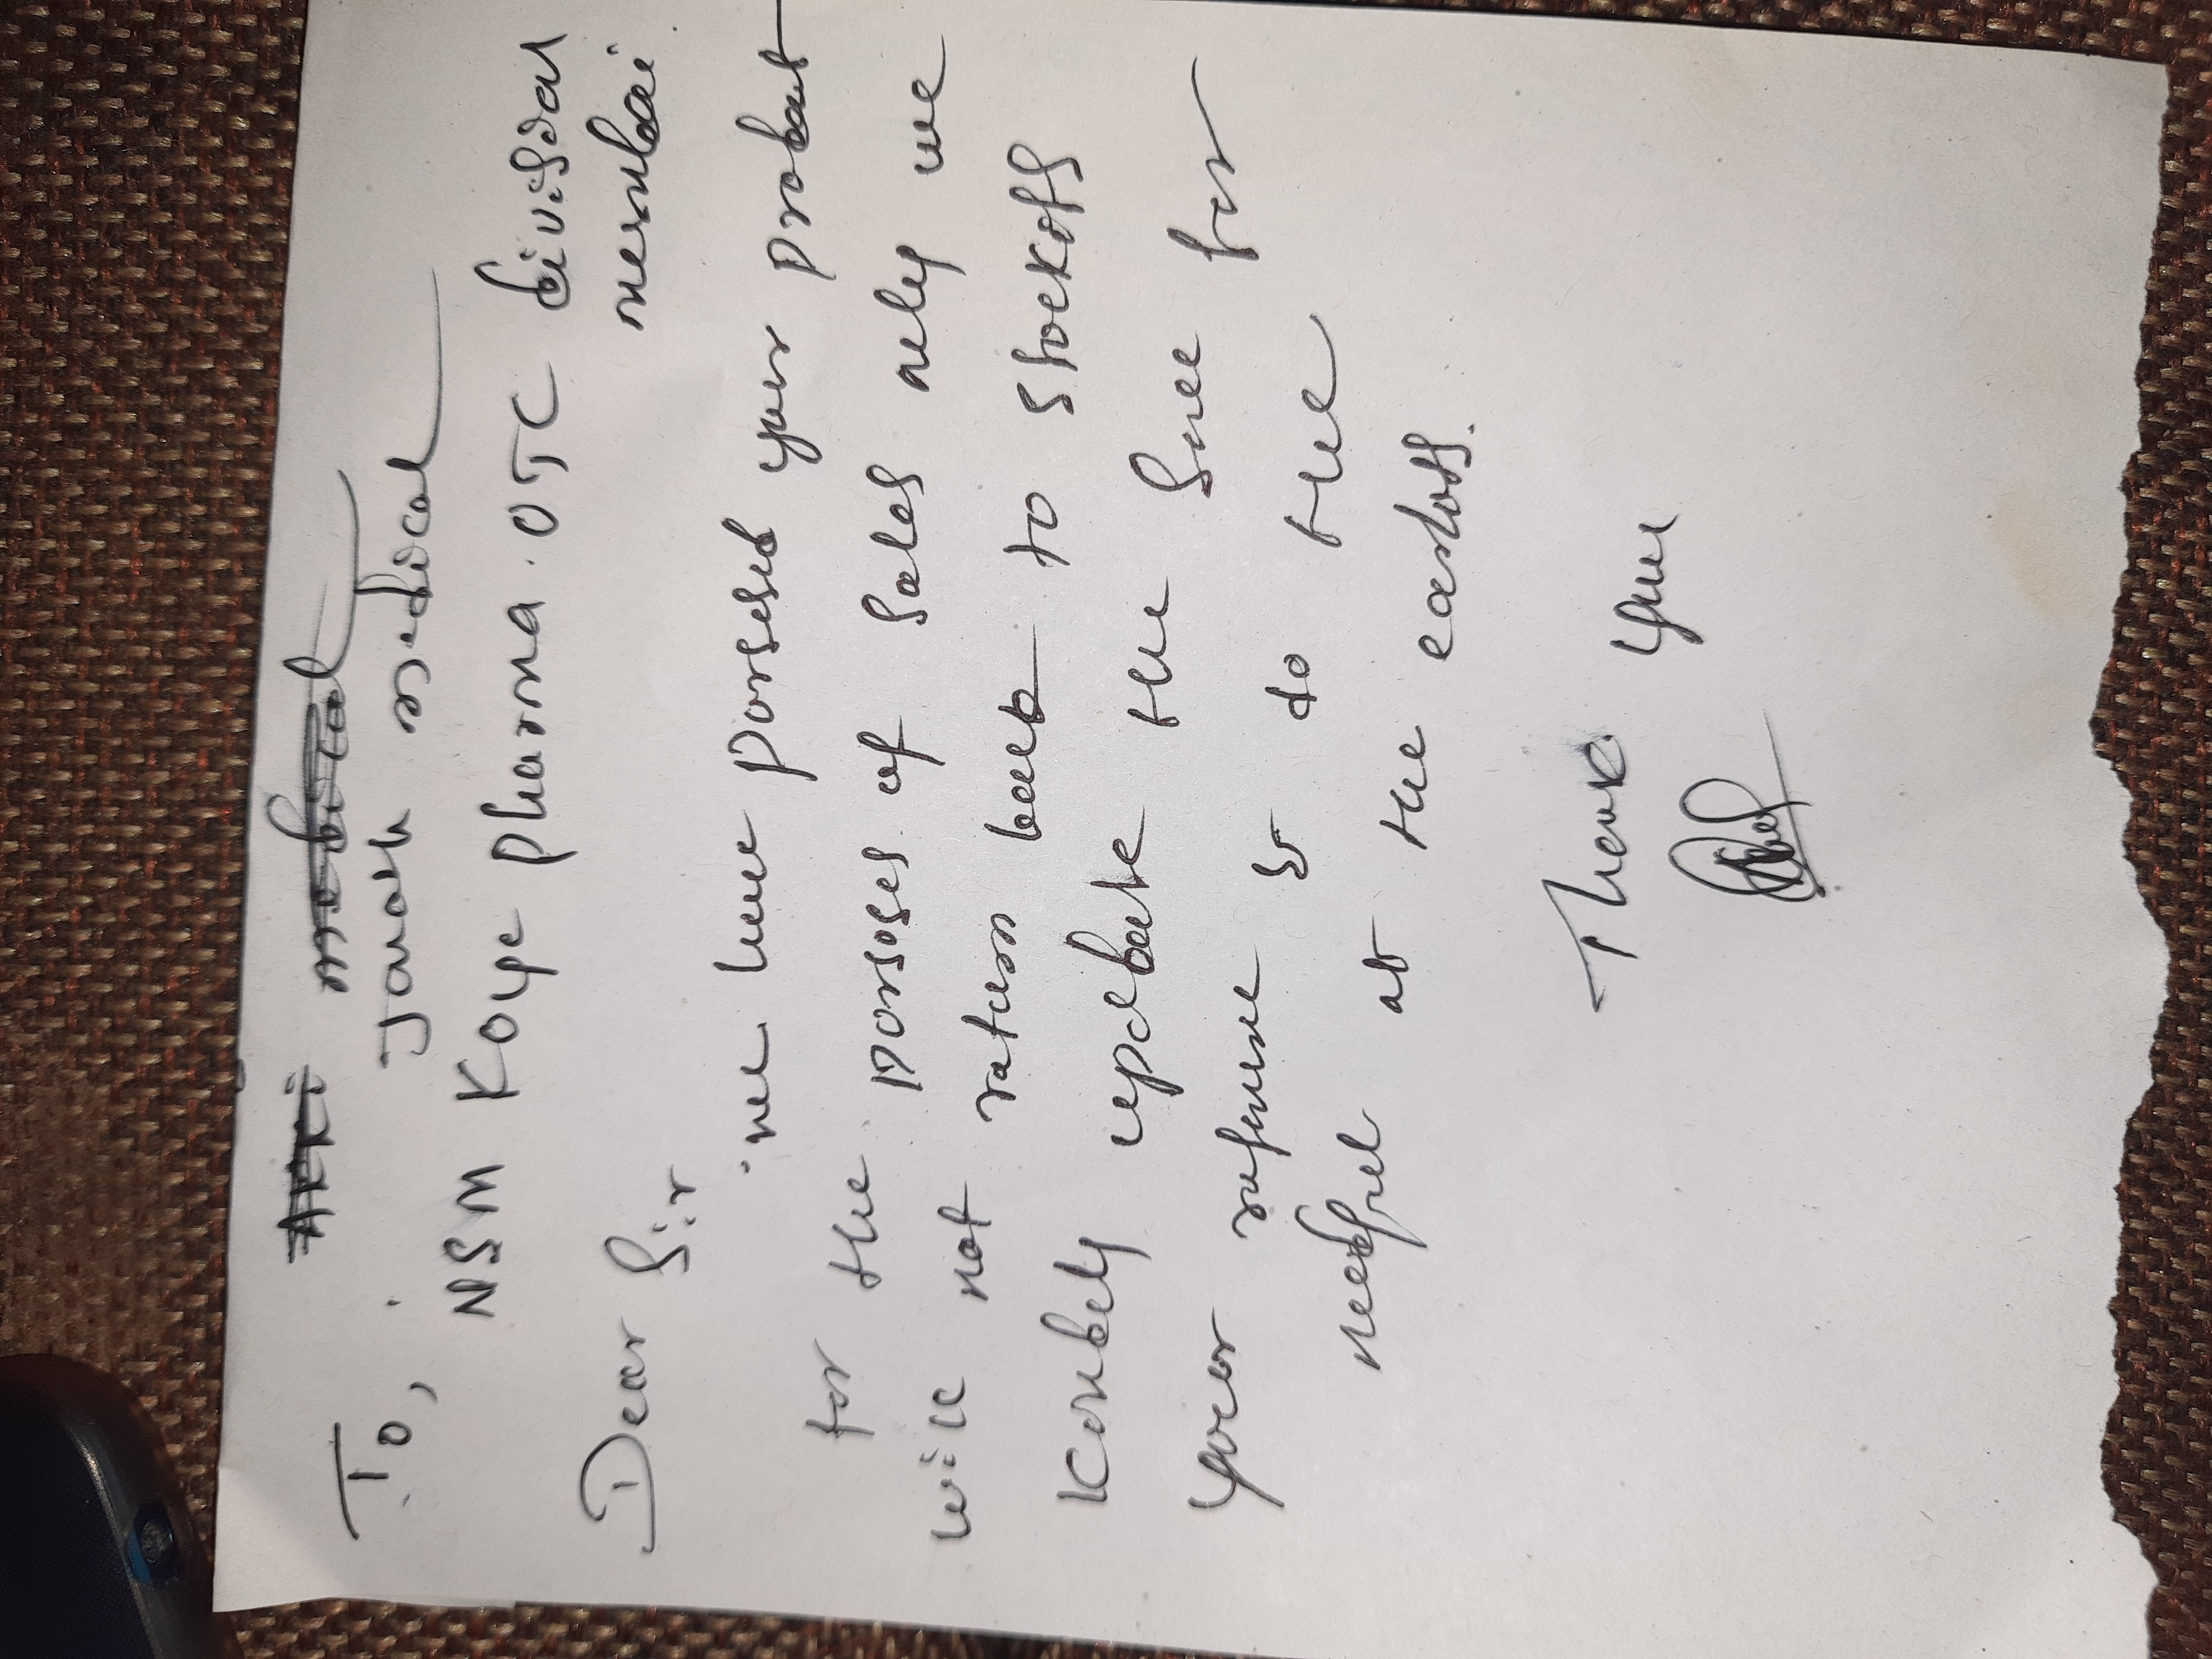 To,
Janak medical
NSM Koye pharma. OTC division
mumbai
Dear Sir
we have porsesd your probat
for the porsoses of Sales only we
will not return back to stockots
Konbely update the Same for
your refrence & do the
needful at the earlost.
Thank you